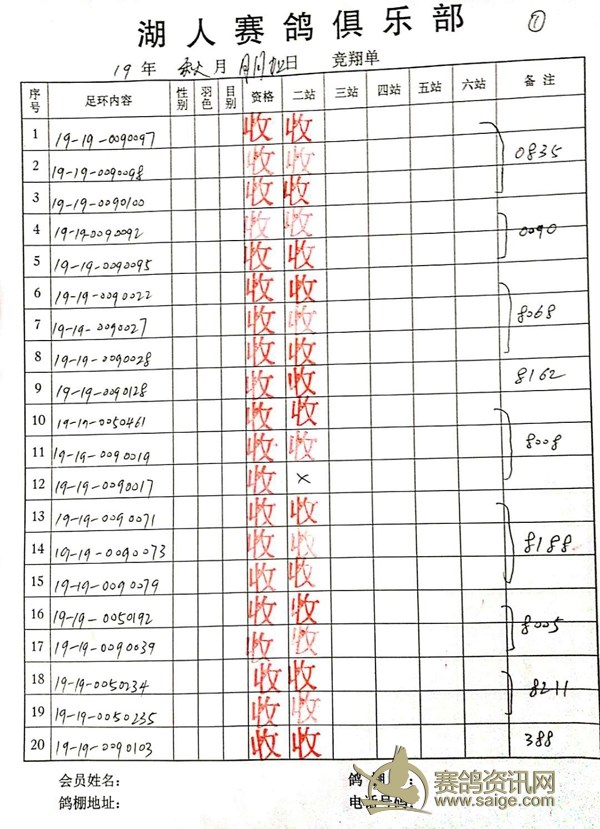 湖人赛鸽俱乐部 ①
19 年 月 日 竞翔单
序号 足环内容 性别 羽色 目别 资格 二站 三站 四站 五站 六站 备注
1 19-19-0090097 收 收
2 19-19-0090098 收 收 0835
3 19-19-0090100 收 收
4 19-19-0090092 收 收 0090
5 19-19-0090095 收 收
6 19-19-0090022 收 收
7 19-19-0090027 收 收 8068
8 19-19-0090028 收 收
9 19-19-0090128 收 收 8162
10 19-19-0050461 收 收
11 19-19-0090019 收 收 8008
12 19-19-0090017 收 ×
13 19-19-0090071 收 收
14 19-19-0090073 收 收 8188
15 19-19-0090079 收 收
16 19-19-0050192 收 收 8005
17 19-19-0090039 收 收
18 19-19-0050234 收 收 8211
19 19-19-0050235 收 收
20 19-19-0090103 收 收 388
会员姓名： 鸽棚号：
鸽棚地址： 电话号码：
赛鸽资讯网
www.saige.com